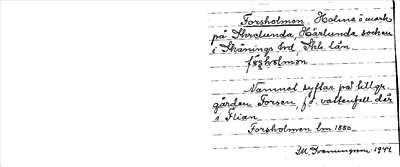 Forsholmen. Holme å mark
på Skrolunda, Härlunda socken
i Skånings hd, Skbs län.
fòsholmən
Namnet syftar på tillgr.
gården Forsen, jf. vattenfall där
i Flian.
Forsholmen lm. 1880
1941